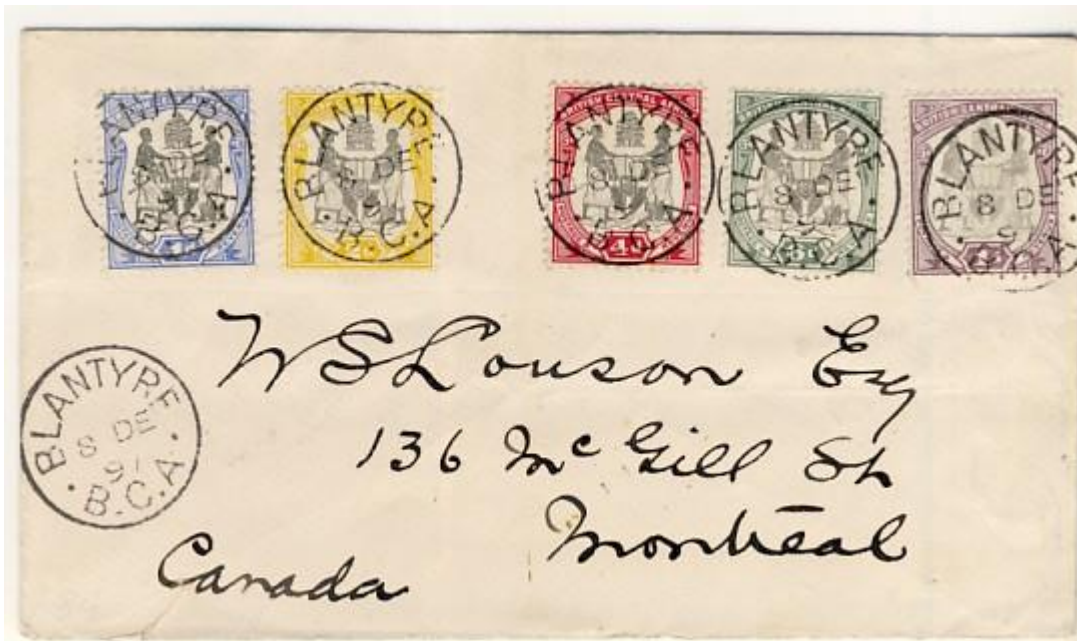 BLANTYRE
8 DE
B.C.A.
BLANTYRE
8 DE
B.C.A
BLANTYRE
8 DE
9
B.C.A
4d
BLANTYRE
8 DE
9
B.C.A
BLANTYRE
8 DE
9
B.C.A
BLANTYRE
8 DE
B.C.A.
W S Louson Esq
136 Mc Gill St
Montreal
Canada